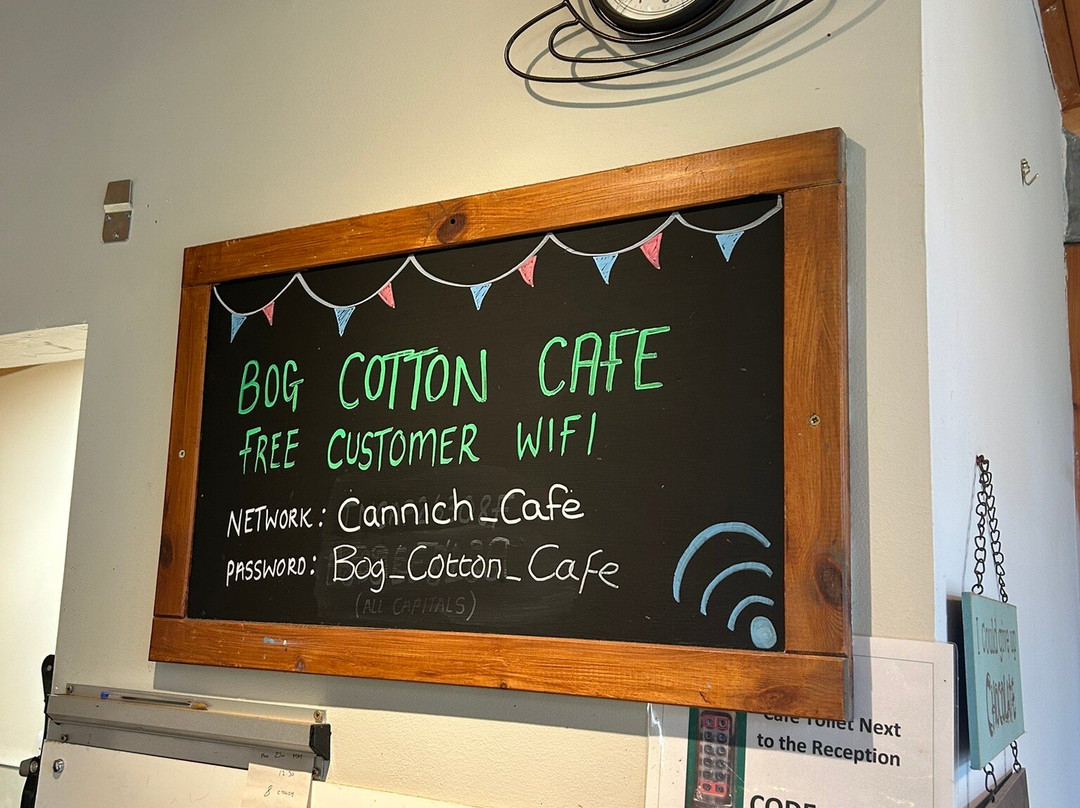 BOG COTTON CAFE
FREE CUSTOMER WIFI
NETWORK: Cannich_Cafe
PASSWORD: Bog_Cotton_Cafe
(ALL CAPITALS)
Cafe Toilet Next
to the Reception
CODE
I could give up
Chocolate